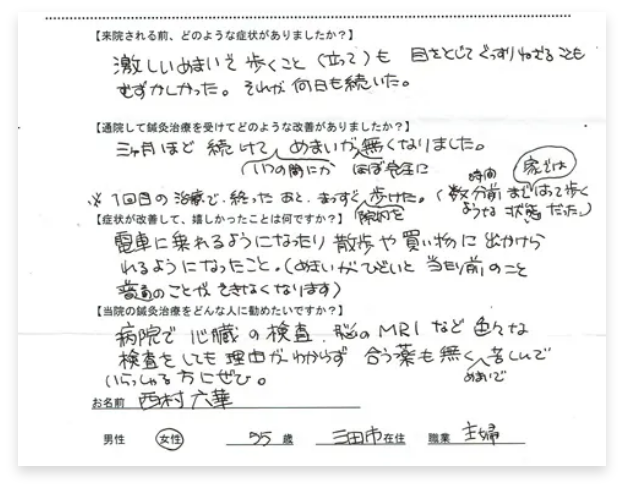 【来院される前、どのような症状がありましたか？】
激しいめまいで歩くこと（立って）も 目をとじてぐっすりねむることも
むずかしかった。それが何日も続いた。
【通院して鍼灸治療を受けてどのような改善がありましたか？】
三ヶ月ほど続けて、めまいが無くなりました。
いつの間にか ほぼ完全に
※1回目の治療で、終ったあと、まっすぐ歩けた。（数分前まではって歩く
時間 家では
院内を
ような状態だった。）
【症状が改善して、嬉しかったことは何ですか？】
電車に乗れるようになったり散歩や買い物に出かけら
れるようになったこと。（めまいがひどいと当り前のこと
普通のことができなくなります）
【当院の鍼灸治療をどんな人に勧めたいですか？】
病院で心臓の検査、脳のMRIなど色々な
検査をしても理由がわからず 合う薬も無く苦しんで
めまいで
いらっしゃる方にぜひ。
お名前 西村六華
男性 女性 55歳 三田市在住 職業 主婦